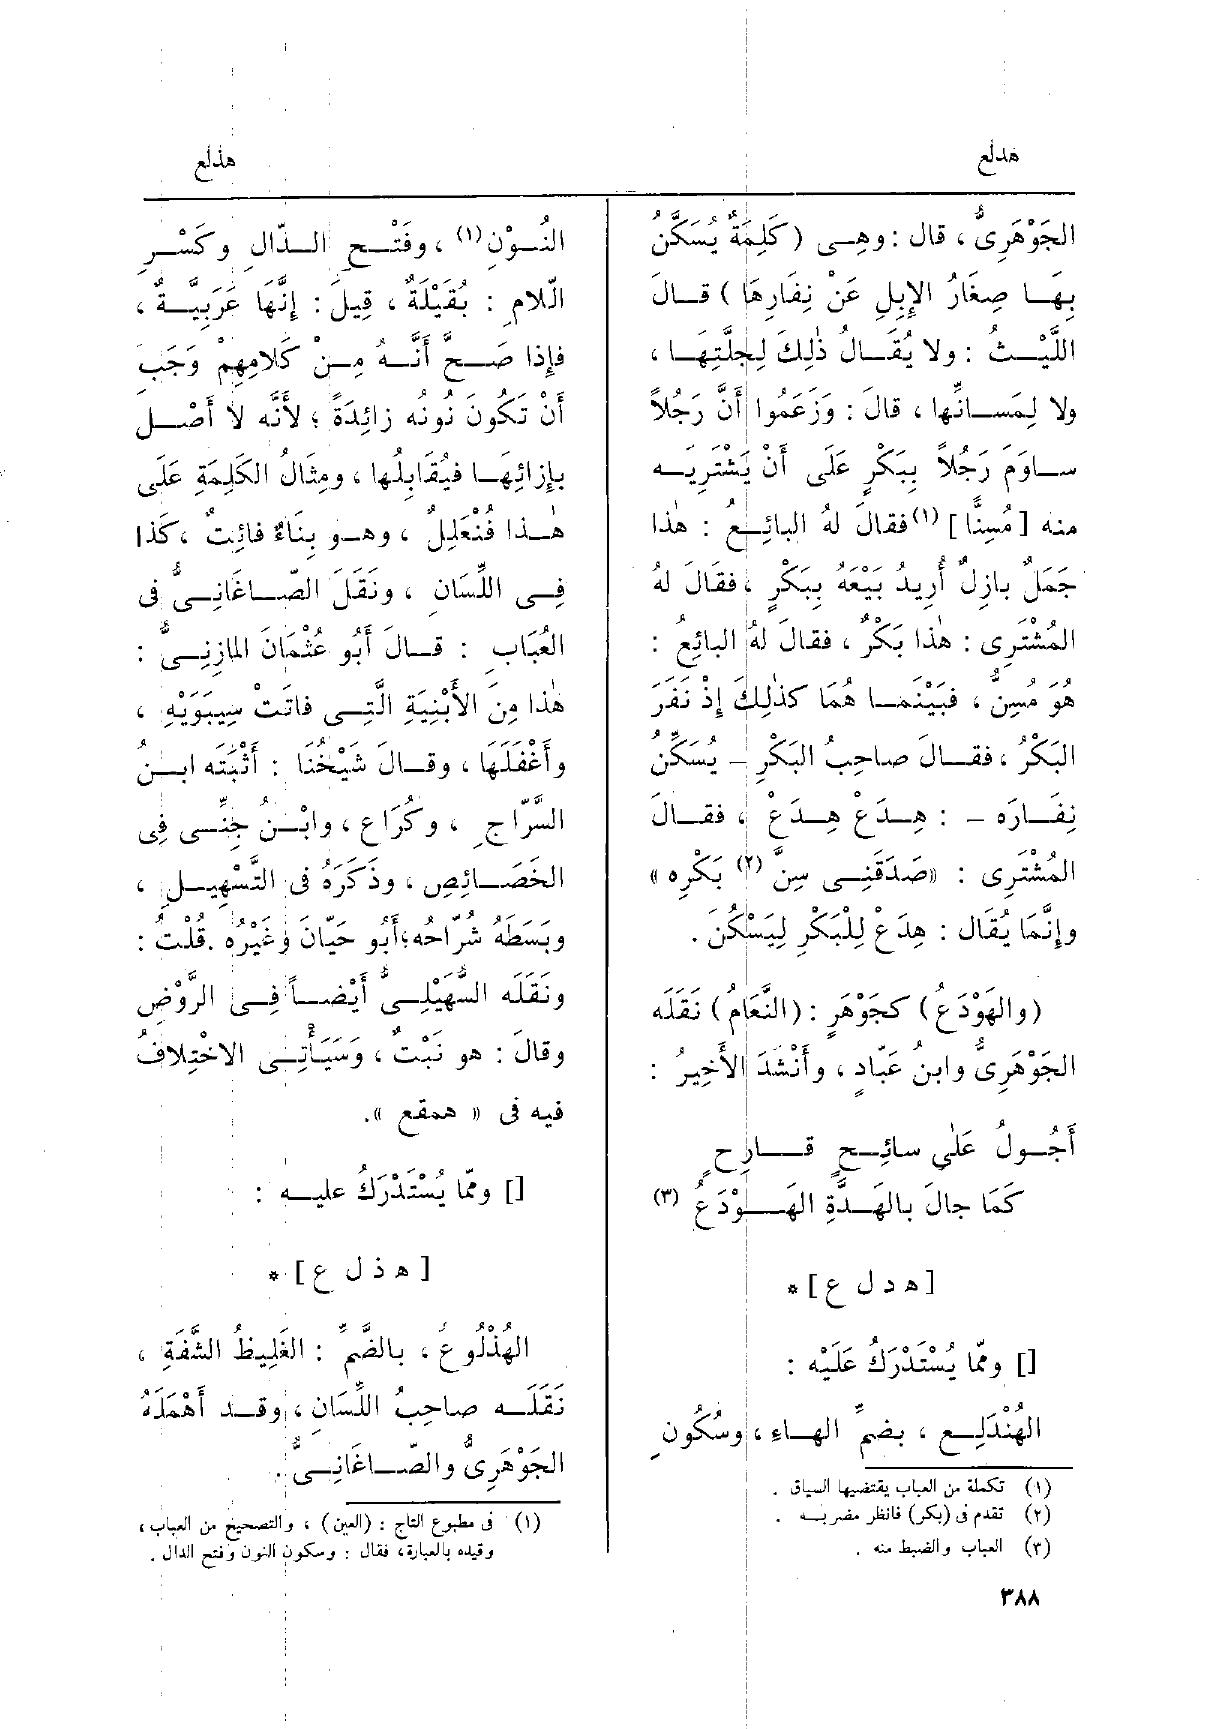 هدلع
هذلع
الجَوْهَرِىُّ ، قال : وهــى (كَلِمَةٌ يُسَكَّنُ
بِهَــا صِغَارُ الإِبِلِ عَنْ نِفَارِهَا ) قــالَ
اللَّيْــثُ : ولا يُقَــالُ ذٰلِكَ لِجِلَّتِهَــا ،
ولا لِمَســانِّها ، قالَ : وَزَعَمُوا أَنَّ رَجُلاً
ســاوَمَ رَجُلاً بِبَكْرٍ عَلَى أَنْ يَشْتَرِيَــه
منه [ مُسِنًّا ] (١) فقالَ لهُ البائِــعُ : هٰذا
جَمَلٌ بازِلٌ أُرِيدُ بَيْعَهُ بِبَكْرٍ ، فقَالَ لهُ
المُشْتَرِى : هٰذا بَكْرٌ ، فقالَ لهُ البائِعُ :
هُوَ مُسِنٌّ ، فبَيْنَمــا هُمَا كذٰلِكَ إِذْ نَفَرَ
البَكْرُ ، فقــالَ صاحِبُ البَكْرِ ــ يُسَكِّنُ
نِفَــارَه ــ : هِــدَعْ هِــدَعْ ، فقــالَ
المُشْتَرِى : «صَدَقَنِــى سِنَّ (٢) بَكْرِه »
وإِنَّمَا يُقَال : هِدَعْ لِلْبَكْرِ لِيَسْكُنَ .
(والهَوْدَعُ) كجَوْهَرٍ : (النَّعَامُ) نَقَلَه
الجَوْهَرِىُّ وابنُ عَبّادٍ ، وأَنْشَدَ الأَخِيرُ :
أَجُــولُ عَلَى سائِــحٍ قــــارِحٍ
كَمَا جالَ بالهَــدَّةِ الهَــــوْدَعُ (٣)
[ ه د ل ع ] *
[] وممّا يُسْتَدْرَكُ عَلَيْه :
الهُنْدَلِــع ، بضمِّ الهــاءِ ، وسُكُونِ
(١) تكملة من العباب يقتضيها السياق .
(٢) تقدم فى (بكر) فانظر مضربــه .
(٣) العباب والضبط منه .
النُّــوْنِ (١) ، وفَتْــحِ الــدّالِ وكَسْــرِ
الّلامِ : بُقَيْلَةٌ ، قِيلَ : إِنَّهَا عَرَبِيَّــةٌ ،
فإِذا صَــحَّ أَنَّــهُ مِــنْ كَلامِهِمْ وَجَبَ
أَنْ تَكُونَ نُونُه زائِدَةً ؛ لأَنَّه لا أَصْــلَ
بإِزائِهَــا فيُقَابِلُها ، ومِثَالُ الكَلِمَةِ عَلَى
هٰــذا فُنْعَلِلٌ ، وهــو بِنَاءٌ فائِتٌ ، كَذا
فِــى اللِّسَانِ ، ونَقَلَ الصّــاغَانِــىُّ فى
العُبَابِ : قــالَ أَبُو عُثْمَانَ المازِنِــىُّ :
هٰذا مِنَ الأَبْنِيَةِ الَّتِــى فاتَتْ سِيبَوَيْهِ ،
وأَغْفَلَهَا ، وقــالَ شَيْخُنَا : أَثْبَتَه ابــنُ
السَّرّاجِ ، وكُرَاع ، وابْــنُ جِنِّــى فِى
الخَصَــائِصِ ، وذَكَرَهُ فى التَّسْهِيــلِ ،
وبَسَطَهُ شُرّاحُه؛ أَبُو حَيّانَ وغَيْرُه . قلتُ :
ونَقَلَه السُّهَيْلِــىُّ أَيْضــاً فِــى الرَّوْضِ
وقالَ : هو نَبْتٌ ، وَسَيَأْتِــى الاخْتِلافُ
فيه فى « همقع ».
[] وممّا يُسْتَدْرَكُ عليــه :
[ ه ذ ل ع ] *
الهُذْلُوعُ ، بالضَّمِّ : الغَلِيظُ الشَّفَةِ ،
نَقَلَــه صاحِبُ اللِّسَانِ ، وقــد أَهْمَلَهُ
الجَوْهَرِىُّ والصّــاغَانِــىُّ .
(١) فى مطبوع التاج : (العين) ، والتصحيح من العباب ،
وقيده بالعبارة، فقال : وسكون النون وفتح الدال .
٣٨٨